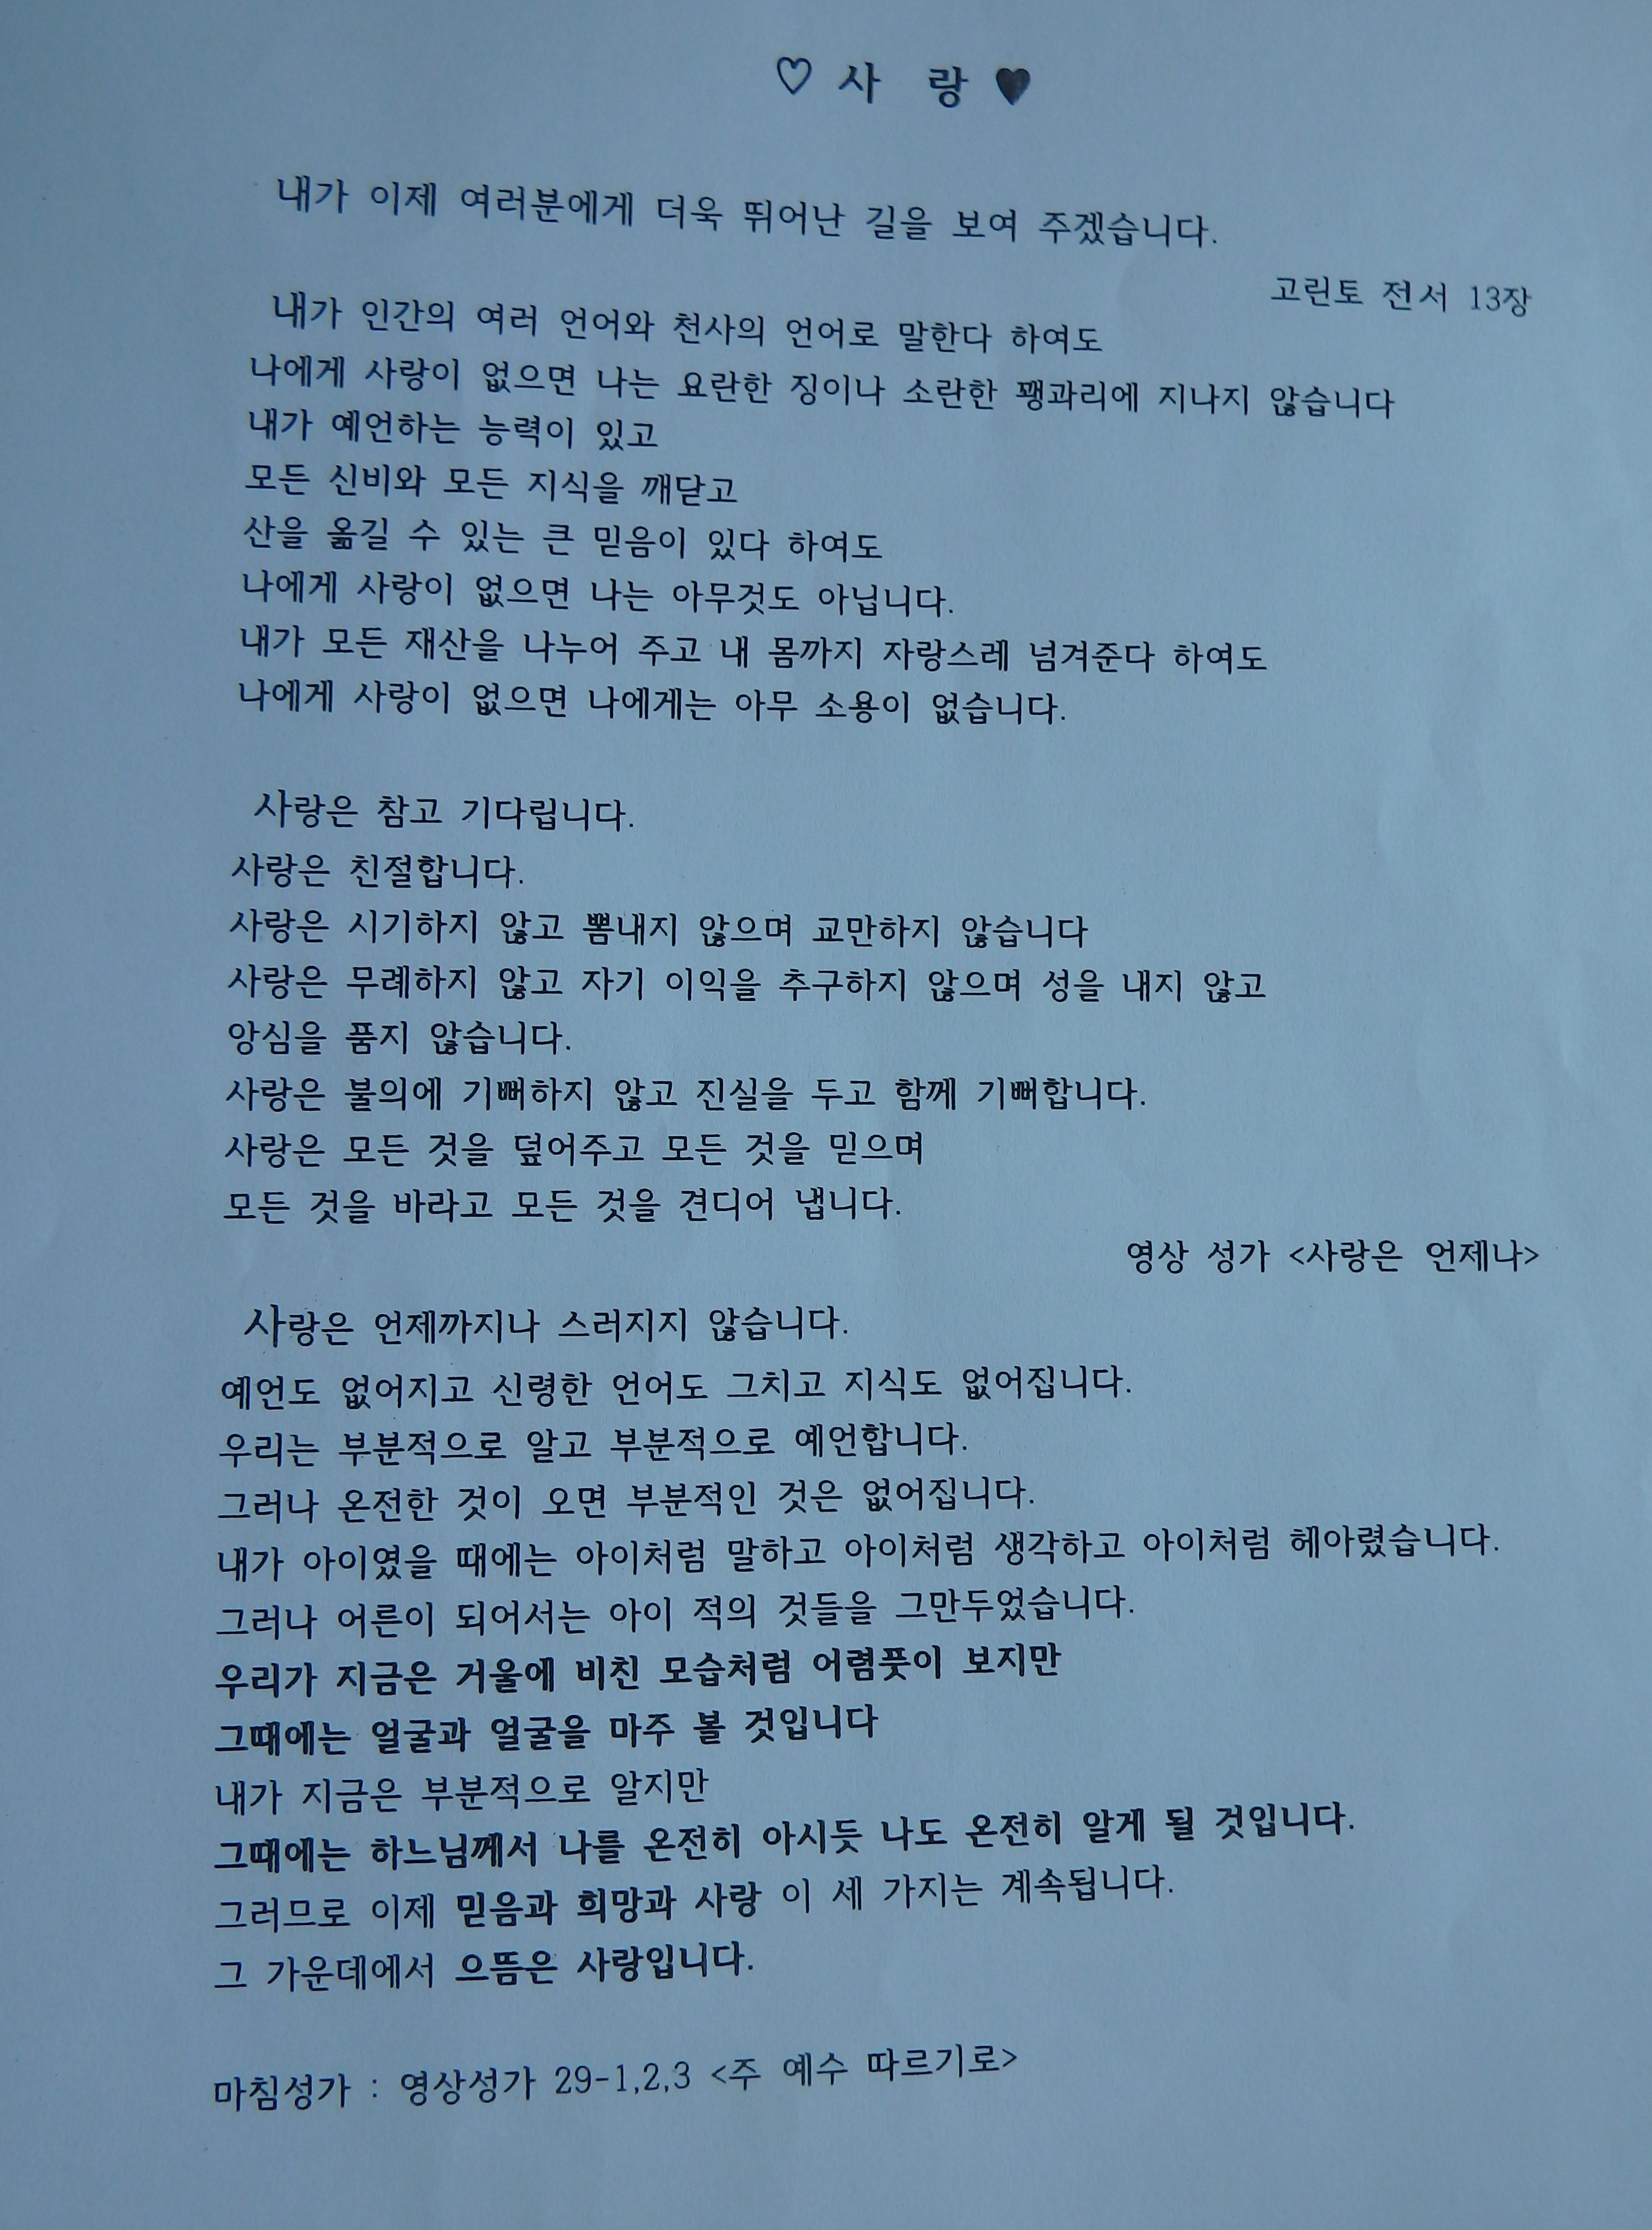 ♡ 사 랑 ♥
내가 이제 여러분에게 더욱 뛰어난 길을 보여 주겠습니다.
고린토 전서 13장
내가 인간의 여러 언어와 천사의 언어로 말한다 하여도
나에게 사랑이 없으면 나는 요란한 징이나 소란한 꽹과리에 지나지 않습니다
내가 예언하는 능력이 있고
모든 신비와 모든 지식을 깨닫고
산을 옮길 수 있는 큰 믿음이 있다 하여도
나에게 사랑이 없으면 나는 아무것도 아닙니다.
내가 모든 재산을 나누어 주고 내 몸까지 자랑스레 넘겨준다 하여도
나에게 사랑이 없으면 나에게는 아무 소용이 없습니다.
사랑은 참고 기다립니다.
사랑은 친절합니다.
사랑은 시기하지 않고 뽐내지 않으며 교만하지 않습니다
사랑은 무례하지 않고 자기 이익을 추구하지 않으며 성을 내지 않고
앙심을 품지 않습니다.
사랑은 불의에 기뻐하지 않고 진실을 두고 함께 기뻐합니다.
사랑은 모든 것을 덮어주고 모든 것을 믿으며
모든 것을 바라고 모든 것을 견디어 냅니다.
영상 성가 <사랑은 언제나>
사랑은 언제까지나 스러지지 않습니다.
예언도 없어지고 신령한 언어도 그치고 지식도 없어집니다.
우리는 부분적으로 알고 부분적으로 예언합니다.
그러나 온전한 것이 오면 부분적인 것은 없어집니다.
내가 아이였을 때에는 아이처럼 말하고 아이처럼 생각하고 아이처럼 헤아렸습니다.
그러나 어른이 되어서는 아이 적의 것들을 그만두었습니다.
우리가 지금은 거울에 비친 모습처럼 어렴풋이 보지만
그때에는 얼굴과 얼굴을 마주 볼 것입니다
내가 지금은 부분적으로 알지만
그때에는 하느님께서 나를 온전히 아시듯 나도 온전히 알게 될 것입니다.
그러므로 이제 믿음과 희망과 사랑 이 세 가지는 계속됩니다.
그 가운데에서 으뜸은 사랑입니다.
마침성가 : 영상성가 29-1,2,3 <주 예수 따르기로>